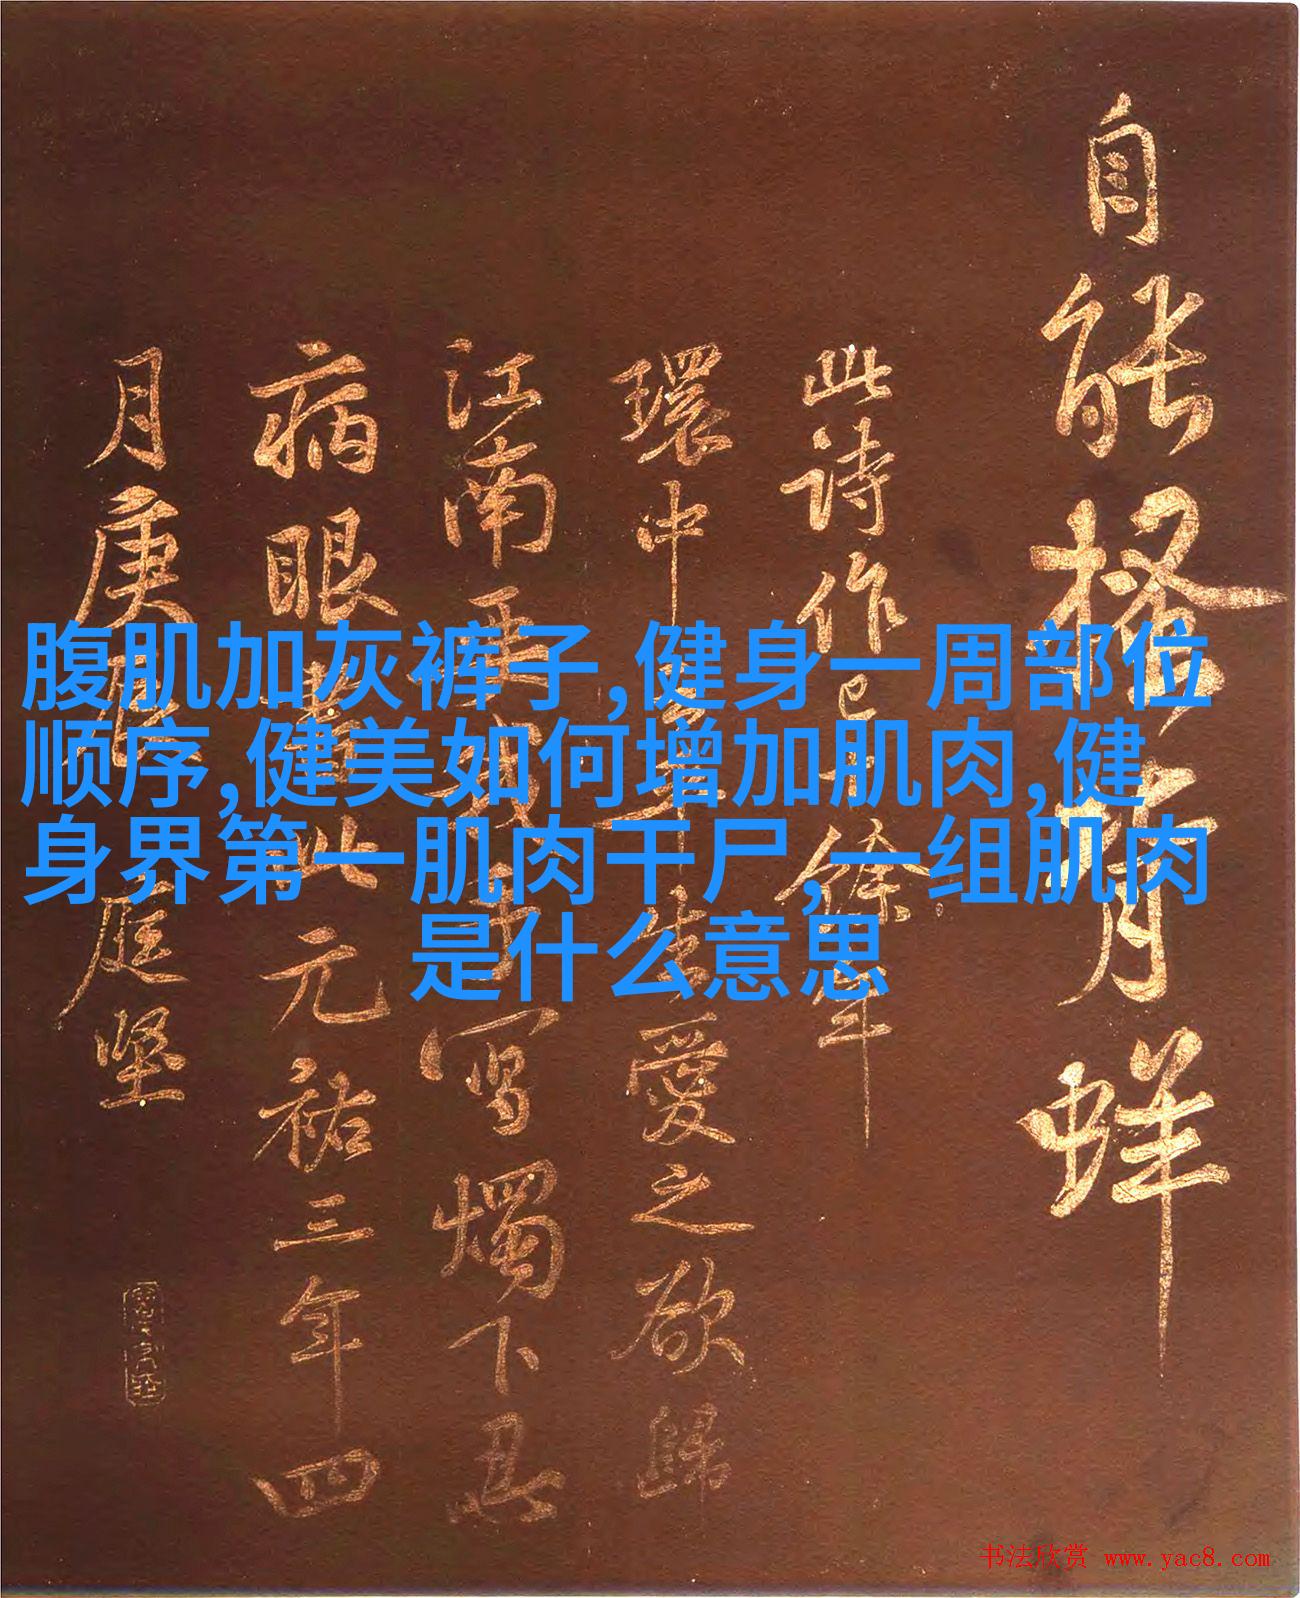 腹肌加灰裤子,健身一周部位
顺序,健美如何增加肌肉,健
身界第一肌肉干尸,一组肌肉
是什么意思
自能搔背蛘
此诗作已十餘年
環中
愛之欲歸
江南
写燭下
病眼書此元祐三年四
月庚辰庭堅
书法欣赏 www.yac8.com